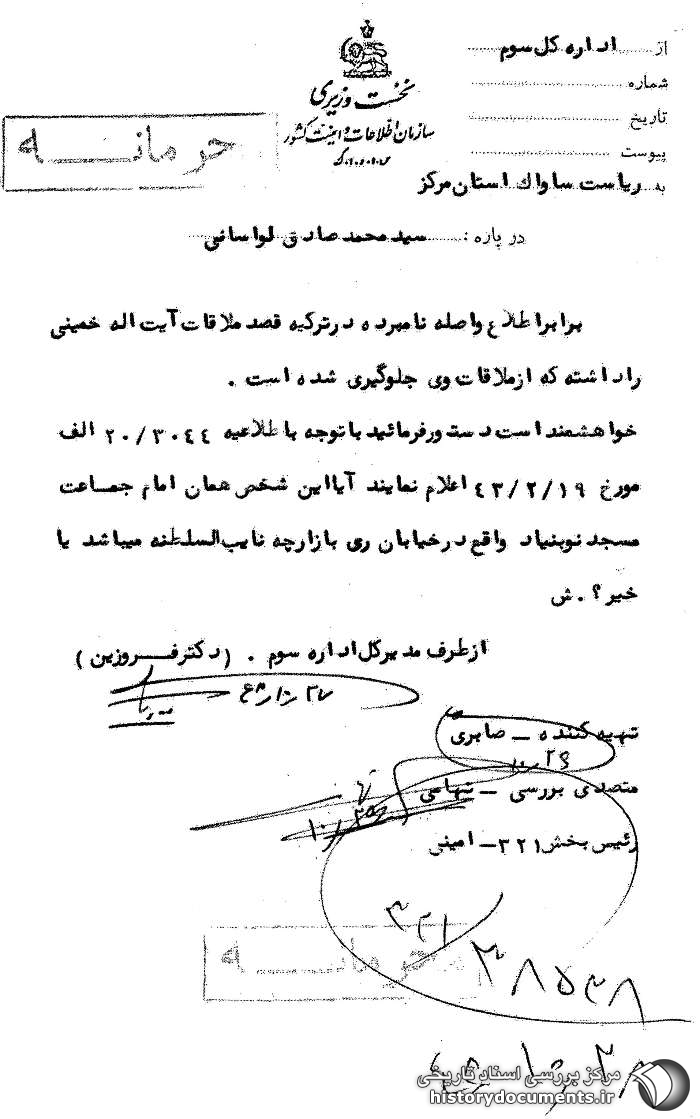 از اداره کل سوم
شماره
تاریخ
پیوست
نخست وزیری
سازمان اطلاعات و امنیت کشور
س.ا.و.ا.ک
محرمانه
به ریاست ساواك استان مرکز
درباره : سید محمد صادق لواسانی
برابر اطلاع واصله نامبرده در ترکیه قصد ملاقات آیت اله خمینی
را داشته که از ملاقات وی جلوگیری شده است .
خواهشمند است دستور فرمائید با توجه باطلاعیه ۲۰/۳۰۴۴ الف
مورخ ۴۳/۲/۱۹ اعلام نمایند آیا این شخص همان امام جماعت
مسجد نوبنیاد واقع در خیابان ری بازارچه نایب السلطنه میباشد یا
خیر ؟ . ش
از طرف مدیر کل اداره سوم . ( دکتر فروزین )
تهیه کننده – صابری
متصدی بررسی – تهامی
رئیس بخش ۳۲۱ – امینی
۳۲۱
محرمانه
مرکز بررسی اسناد تاریخی
historydocuments.ir